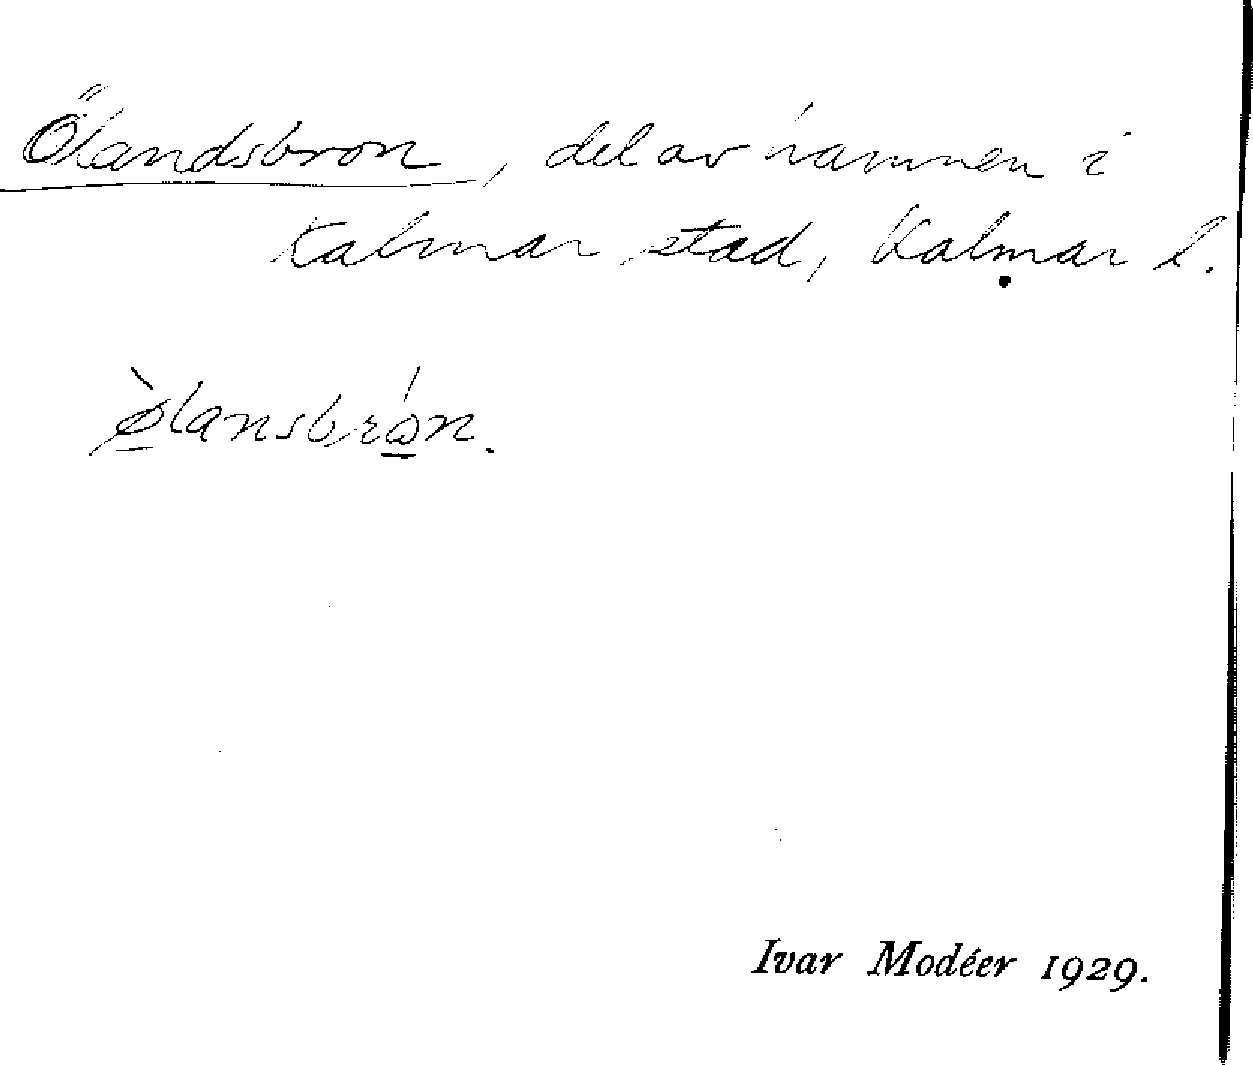 Ölandsbron, del av hamnen i
Kalmar stad, Kalmar l.
ø̱̀lansbró̱n.
Ivar Modéer 1929.